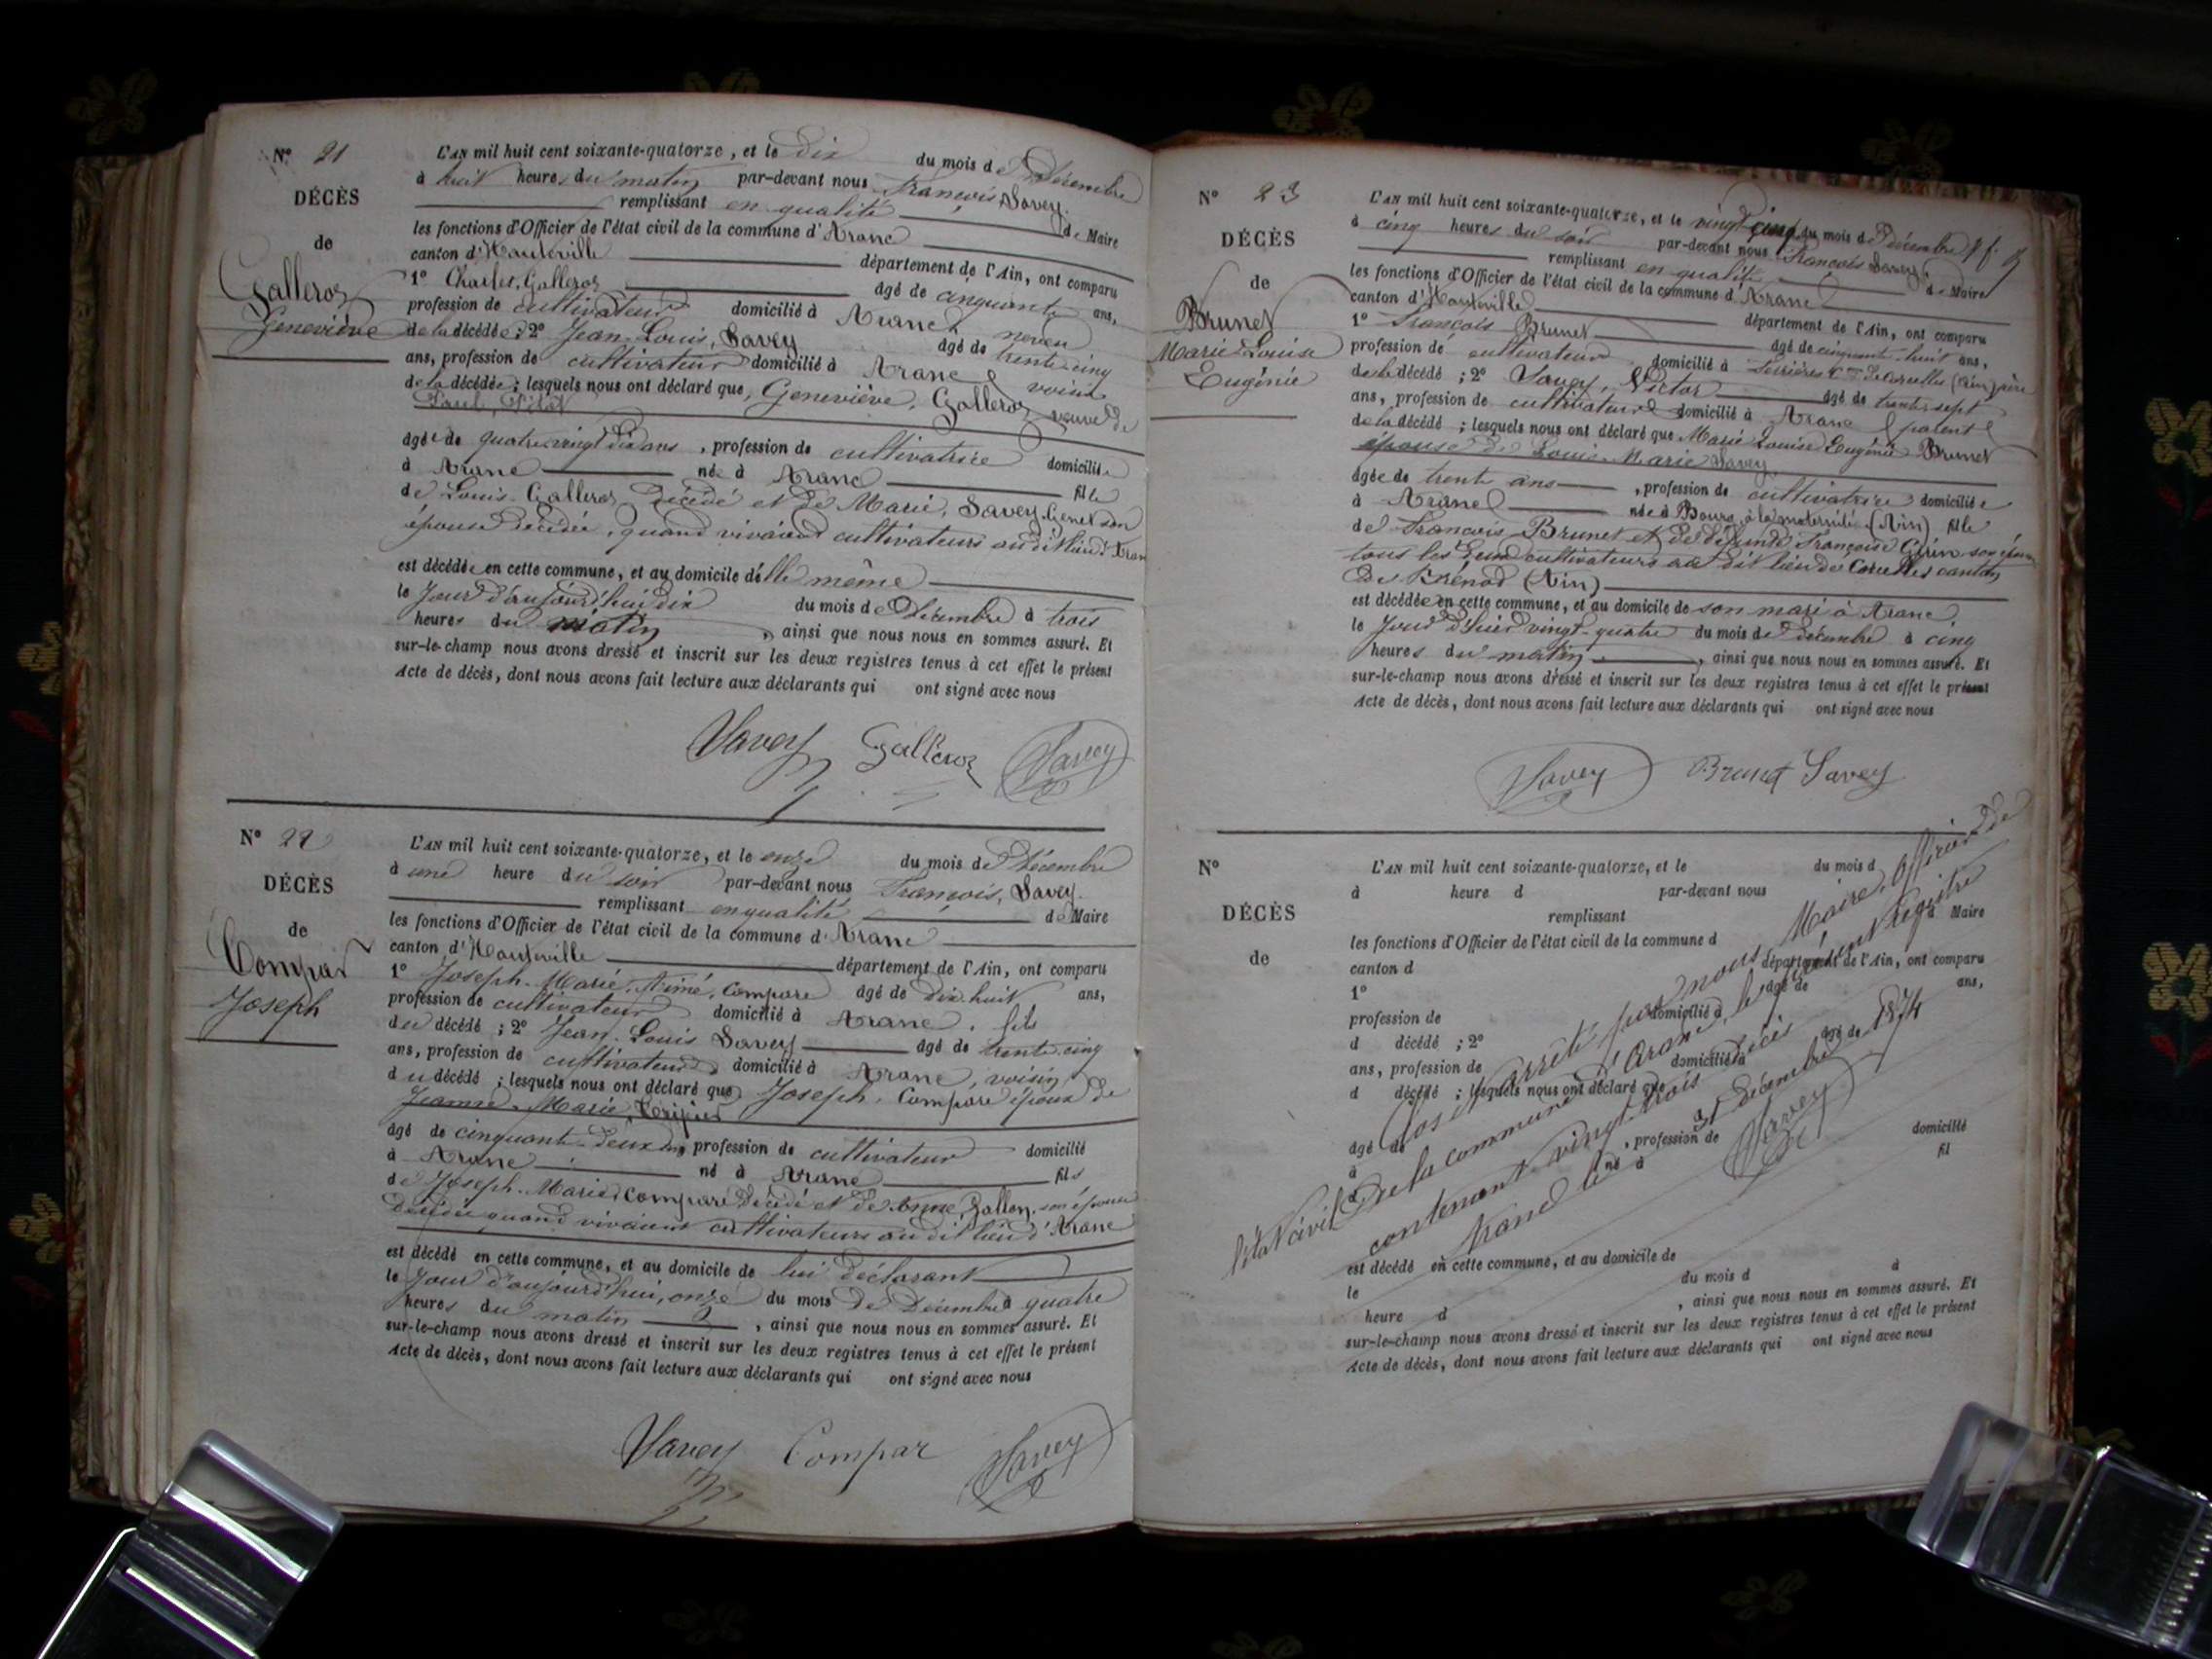 N° 21
DÉCÈS
de
Galleroz
Geneviève
L'AN mil huit cent soixante-quatorze, et le dix du mois de Décembre
à huit heures du matin par-devant nous François Savey
remplissant en qualité de Maire
les fonctions d'Officier de l'état civil de la commune d'Aranc
canton d'Hauteville département de l'Ain, ont comparu
1° Charles, Galleroz agé de cinquante ans,
profession de cultivateur domicilié à Aranc, neveu
de la décédée ; 2° Jean-Louis, Savey agé de trente cinq
ans, profession de cultivateur domicilié à Aranc voisin
de la décédée ; lesquels nous ont déclaré que, Geneviève, Galleroz veuve de
Paul,
agée de quatre vingt dix ans, profession de cultivatrice domiciliée
à Aranc née à Aranc fille
de Louis Galleroz décédé et de Marie, Savey-Genet son
épouse décédée, quand vivaient cultivateurs au dit lieu d'Aran
est décédée en cette commune, et au domicile d'elle même
le Jour d'aujourd'hui dix du mois de Décembre à trois
heures du matin, ainsi que nous nous en sommes assuré. Et
sur-le-champ nous avons dressé et inscrit sur les deux registres tenus à cet effet le présent
Acte de décès, dont nous avons fait lecture aux déclarants qui ont signé avec nous
Savey Galleroz Savey
N° 22
DÉCÈS
de
Compar
Joseph
L'AN mil huit cent soixante-quatorze, et le onze du mois de Décembre
à une heure du soir par-devant nous François, Savey.
remplissant en qualité de Maire
les fonctions d'Officier de l'état civil de la commune d'Aranc
canton d'Hauteville département de l'Ain, ont comparu
1° Joseph-Marie-Aimé, Compare agé de dix huit ans,
profession de cultivateur domicilié à Aranc, fils
du décédé ; 2° Jean-Louis Savey agé de trente cinq
ans, profession de cultivateur domicilié à Aranc, voisin
du décédé ; lesquels nous ont déclaré que Joseph, Compare époux de
Jeanne-Marie,
agé de cinquante-deux ans profession de cultivateur domicilié
à Aranc né à Aranc fils
de Joseph-Marie, Compare décédé et de Anne, son épouse
décédée quand vivaient cultivateurs au dit lieu d'Aranc
est décédé en cette commune, et au domicile de lui déclarant
le Jour d'aujourd'hui, onze du mois de Décembre à quatre
heures du matin, ainsi que nous nous en sommes assuré. Et
sur-le-champ nous avons dressé et inscrit sur les deux registres tenus à cet effet le présent
Acte de décès, dont nous avons fait lecture aux déclarants qui ont signé avec nous
Savey Compar Savey
N° 23
DÉCÈS
de
Brunet
Marie-Louise
Eugénie
L'AN mil huit cent soixante-quatorze, et le vingt cinq du mois de Décembre
à cinq heures du soir par-devant nous François Savey.
remplissant en qualité de Maire
les fonctions d'Officier de l'état civil de la commune d'Aranc
canton d'Hauteville département de l'Ain, ont comparu
1° François Brunet agé de cinquante-huit ans,
profession de cultivateur domicilié à (Ain) père
de la décédé ; 2° Savey, Victor agé de trente sept
ans, profession de cultivateur domicilié à Aranc parent
de la décédé ; lesquels nous ont déclaré que Marie Louise Eugénie Brunet
épouse de Louis-Marie Savey
agée de trente ans, profession de cultivatrice domiciliée
à Aranc née à Bourg, à la maternité (Ain) fille
de François Brunet et de défunte Françoise son épouse
tous les deux cultivateurs au dit lieu de Corcelles canton
de Brénod (Ain)
est décédée en cette commune, et au domicile de son mari à Aranc
le Jour d'hier vingt-quatre du mois de Décembre à cinq
heures du matin, ainsi que nous nous en sommes assuré. Et
sur-le-champ nous avons dressé et inscrit sur les deux registres tenus à cet effet le présent
Acte de décès, dont nous avons fait lecture aux déclarants qui ont signé avec nous
Savey Brunet Savey
N°
DÉCÈS
de
L'AN mil huit cent soixante-quatorze, et le du mois d
à heure d par-devant nous
remplissant d Maire
les fonctions d'Officier de l'état civil de la commune d
canton d département de l'Ain, ont comparu
1° agé de ans,
profession de domicilié à
d décédé ; 2° agé de
ans, profession de domicilié à
d décédé ; lesquels nous ont déclaré que
agé de , profession de domicilié
à né à fil
d
est décédé en cette commune, et au domicile de
le du mois d à
heure d , ainsi que nous nous en sommes assuré. Et
sur-le-champ nous avons dressé et inscrit sur les deux registres tenus à cet effet le présent
Acte de décès, dont nous avons fait lecture aux déclarants qui ont signé avec nous
Clos et arrêté par nous Maire, Officier de
l'état civil de la commune d'Aranc, le présent Registre
contenant vingt-trois décès
Aranc le 31 Décembre 1874
Savey